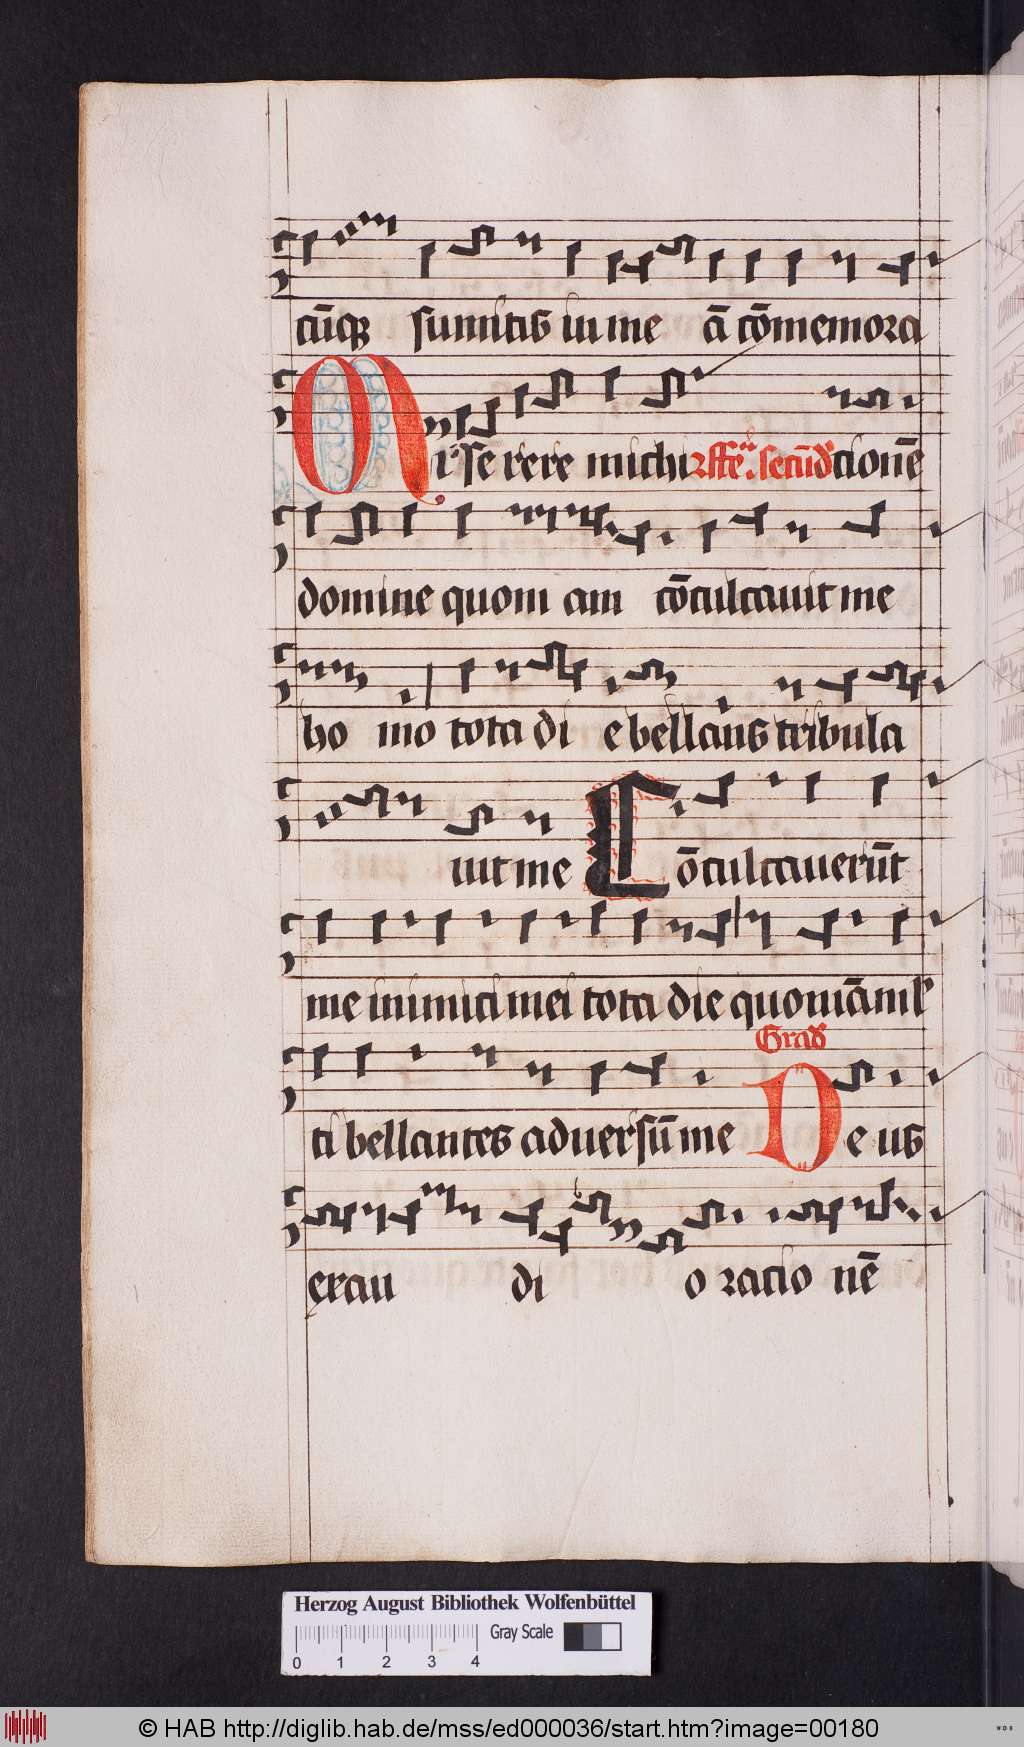 cūq₃ sumitis in me ā cōmemora
Miserere michi ꝛ ffeʳⁱᵃ secūd cionē
domine quoni am cōculcauit me
ho mo tota di e bellans tribula
uit me Cōculcauerūt
me inimici mei tota die quoniā ml
Grad
ti bellantes aduersū me De us
exau di o racio nē
Herzog August Bibliothek Wolfenbüttel
Gray Scale
0 1 2 3 4
© HAB http://diglib.hab.de/mss/ed000036/start.htm?image=00180